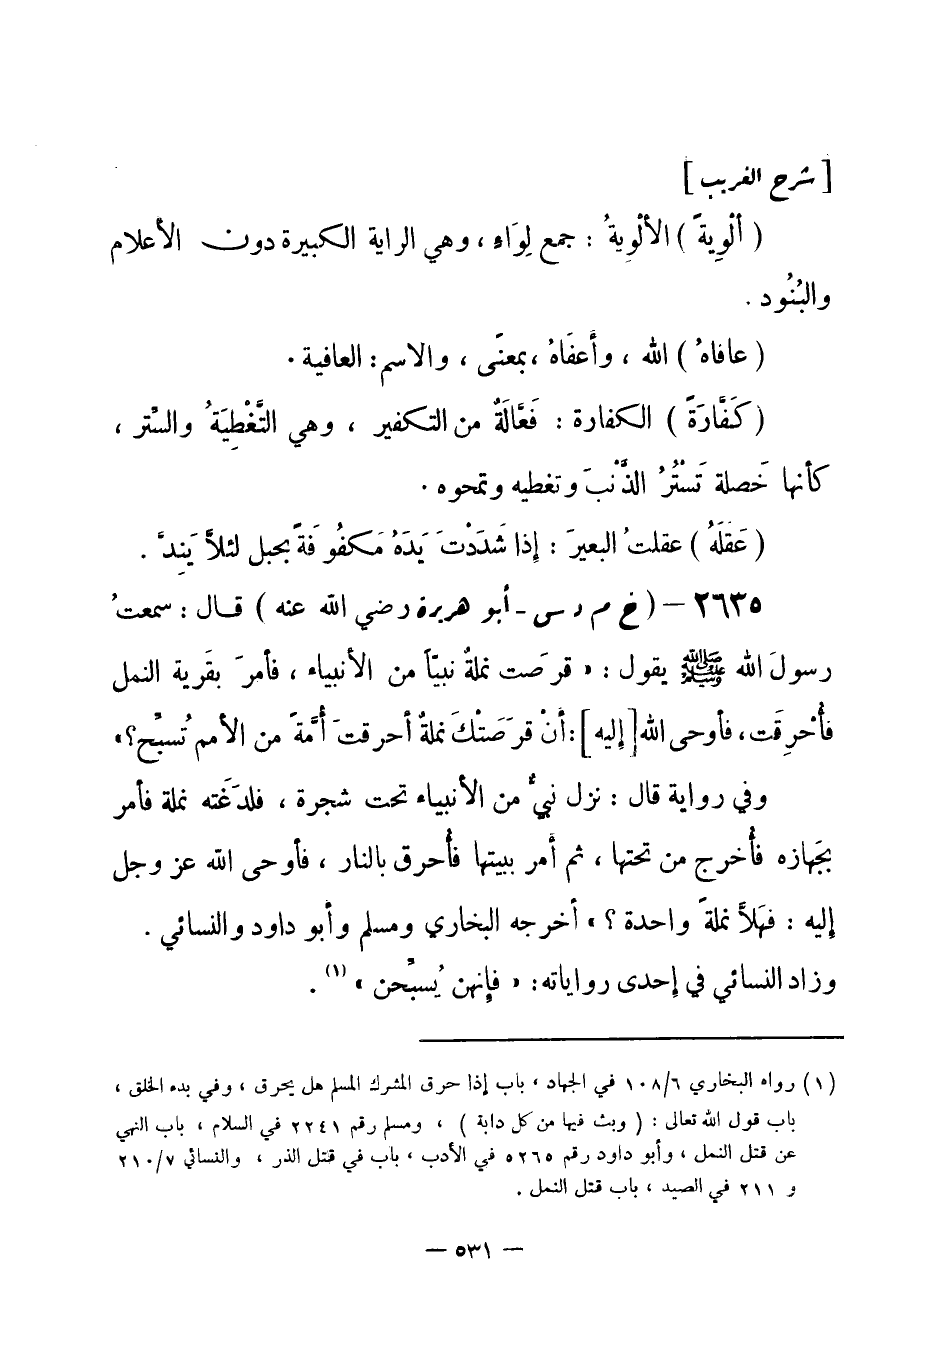 [ شرح الغريب ]
( ألْوِيةً ) الألْوِيةُ : جمع لِوَاءٍ ، وهي الراية الكبيرة دون الأعلام
والبُنُود .
( عافاهُ ) الله ، وأَعفَاهُ ، بمعنًى ، والاسم : العافية .
( كَفَّارَةً ) الكفارة : فَعَّالَةٌ من التكفير ، وهي التَّغْطِيَةُ والسَّتر ،
كأنها خَصلة تَسْتُرُ الذَّنْبَ وتغطيه وتمحوه .
( عَقَلَهُ ) عقلتُ البعيرَ : إذا شَدَدْتَ يَدَهُ مَكفُوفَةً بحبل لئلاَّ يَنِدَّ .
٢٦٣٥ – ( خ م د س - أبو هريرة رضي الله عنه ) قال : سمعتُ
رسولَ الله ﷺ يقول : « قرَصت نملةٌ نبيّاً من الأنبياء ، فأمرَ بقَرية النمل
فأُحْرِقَت ، فأوحى الله [إليه] : أنْ قرَصَتْكَ نملةٌ أحرقتَ أُمَّةً من الأمم تُسبِّح؟»
وفي رواية قال : نزل نبيٌّ من الأنبياء تحت شجرة ، فلدَغَته نملة فأمر
بجَهازه فأُخرج من تحتها ، ثم أَمر ببيتها فأُحرق بالنار ، فأوحى الله عز وجل
إليه : فهَلاَّ نملةً واحدة ؟ » أخرجه البخاري ومسلم وأبو داود والنسائي .
وزاد النسائي في إحدى رواياته : « فإنهن يُسبِّحن » (١) .
(١) رواه البخاري ١٠٨/٦ في الجهاد ، باب إذا حرق المشرك المسلم هل يحرق ، وفي بدء الخلق ،
باب قول الله تعالى : ( وبث فيها من كل دابة ) ، ومسلم رقم ٢٢٤١ في السلام ، باب النهي
عن قتل النمل ، وأبو داود رقم ٥٢٦٥ في الأدب ، باب في قتل الذر ، والنسائي ٢١٠/٧
و ٢١١ في الصيد ، باب قتل النمل .
– ٥٣١ –